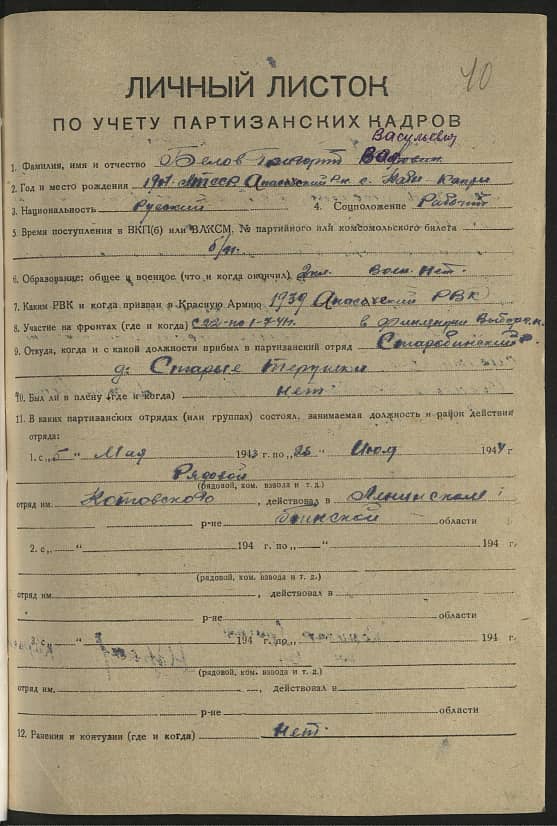 40
ЛИЧНЫЙ ЛИСТОК
ПО УЧЕТУ ПАРТИЗАНСКИХ КАДРОВ
Васильевич
1. Фамилия, имя и отчество Белов Григорий
2. Год и место рождения 1907 АТССР Апасовский р-н с.
3. Национальность Русский 4. Соцположение Рабочий
5. Время поступления в ВКП(б) или ВЛКСМ, № партийного или комсомольского билета
б/п.
6. Образование: общее и военное (что и когда окончил) 3кл. Воен. Нет.
7. Каким РВК и когда призван в Красную Армию 1939 Апасовский РВК
8. Участие на фронтах (где и когда) с 22- по 1-7-41г. в
9. Откуда, когда и с какой должности прибыл в партизанский отряд Старобинский р.
д. Старые Терушки
10. Был ли в плену (где и когда) нет.
11. В каких партизанских отрядах (или группах) состоял, занимаемая должность и район действия
отряда:
1. с „5“ Мая 1943 г. по „25“ Июля 1944 г.
Рядовой
(рядовой, ком. взвода и т. д.)
отряд им. Котовского, действовал в Ленинском
р-не Пинской области
2. с „ “ 194 г. по „ “ 194 г.
(рядовой, ком. взвода и т. д.)
отряд им. , действовал в
р-не области
3. с „ “ 194 г. по „ “ 194 г.
(рядовой, ком. взвода и т. д.)
отряд им. , действовал в
р-не области
12. Ранения и контузии (где и когда) Нет.